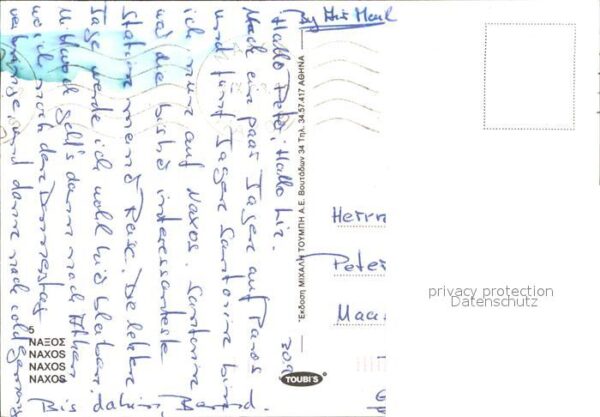 By Air Mail
30.9.
Hallo Peter, Hallo Liz.
Nach ein paar Tagen auf Paros
und fünf Tagen Santorin bin
ich nun auf Naxos. Santorin
war die bisher interessanteste
Station meine Reise. Die letzten
Tage werde ich wohl hier bleiben.
Mittwoch geht's dann nach Athen
wo ich noch den Donnerstag
verbringe und dann nach
Bis dahin,
5
ΝΑΞΟΣ
NAXOS
NAXOS
NAXOS
Έκδοση ΜΙΧΑΛΗ ΤΟΥΜΠΗ Α.Ε. Βουτάδων 34 Τηλ. 34.57.417 ΑΘΗΝΑ
TOUBI'S
Herrn
Peter
Maa
privacy protection
Datenschutz